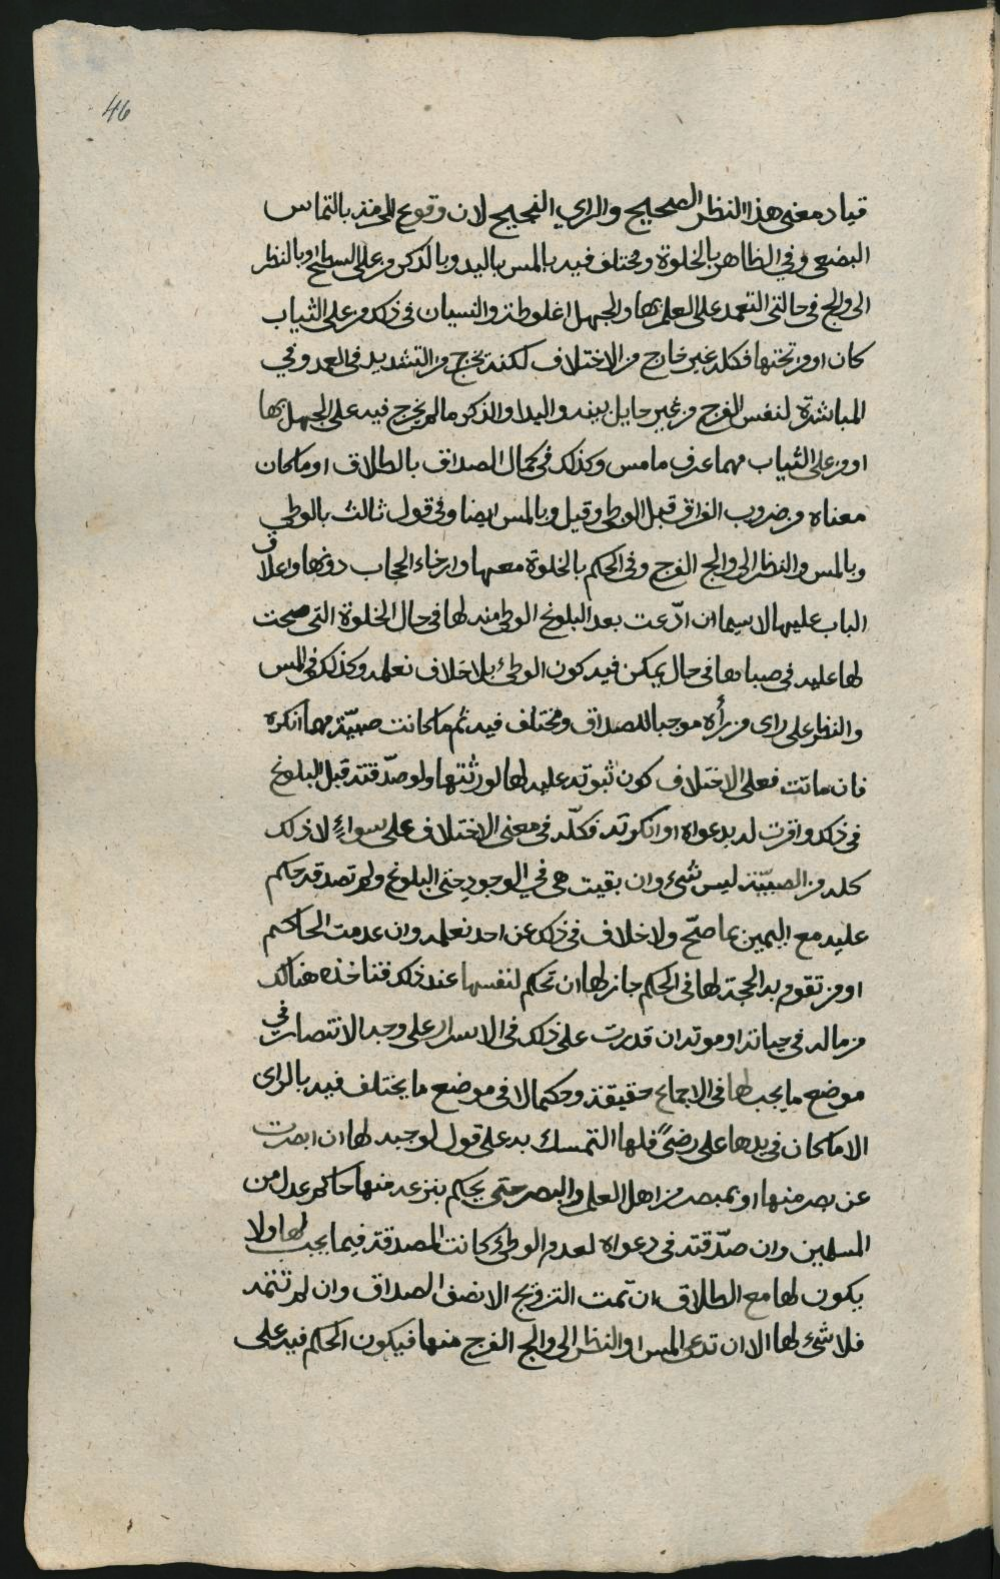 46
قياد معنى هذا النظر الصحيح والراي النجيح لان وقوع الحرمة بالتماس
البضعي وفي الظاهر بالخلوة ومختلف فيه بالمس باليد وبالذكر من على السطح وبالنظر
الى والج في حالتي التعمد على العلم بها والجهل اغلوطة والنسيان في ذلك من على الثياب
كان او من تحتها فكله غير خارج من الاختلاف لكنه يخرج من التشديد في العمد وفي
المباشرة لنفس الفرج من غير حايل بينه واليد او الذكر ما لم يخرج فيه على الجهل بها
او من على الثياب مهما عرف ما مس وكذلك في كمال الصداق بالطلاق او ما كان
معناه من ضروب الفراق قبل الوطي وقيل وبالمس ايضا وفي قول ثالث بالوطي
وبالمس والنظر الى والج الفرج وفي الحكم بالخلوة معها وارخاء الحجاب دونها واغلاق
الباب عليها لا سيما ان ادّعت بعد البلوغ الوطي منه لها في حال الخلوة التي صحت
لها عليه في صباها في حال يمكن فيه كون الوطئ بلا خلاف نعلمه وكذلك في المس
والنظر على راي من رأه موجبا للصداق ومختلف فيه ثم ما كانت صبيّة مهما انكره
فان ماتت فعلى الاختلاف كون ثبوته عليه لها لورثتها ولو صدّقته قبل البلوغ
في ذلك واقرت له بدعواه او انكرته فكلّه في معنى الاختلاف على سواءٍ لا ذلك
كله من الصبيّة ليس شيء وان بقيت هي في الوجود حتى البلوغ ولم تصدقه حكم
عليه مع اليمين بما صحّ ولا خلاف في ذلك عن احد نعلمه وان عدمت الحاكم
او من تقوم به الحجة لها في الحكم جاز لها ان تحكم لنفسها عند ذلك فتاخذه هنالك
من ماله في حياته او موته ان قدرت على ذلك في الاسرار على وجه الانتصار في
موضع ما يجب لها في الاجماع حقيقة وحكما لا في موضع ما يختلف فيه بالراي
الا ما كان في يدها على رضىً فلها التمسك به على قول لوجبه لها ان ابصرت
عن بصر منها او بمبصر من اهل العلم والبصر حتى يحكم بنزعه منها حاكم عدل من
المسلمين وان صدّقته في دعواه لعدم الوطئ كانت المصدقة فيما يجب لها ولا
يكون لها مع الطلاق ان تمت التزويج الا نصف الصداق وان لم تتمه
فلا شيء لها الا ان تدعي المس او النظر الى والج الفرج منها فيكون الحكم فيه على